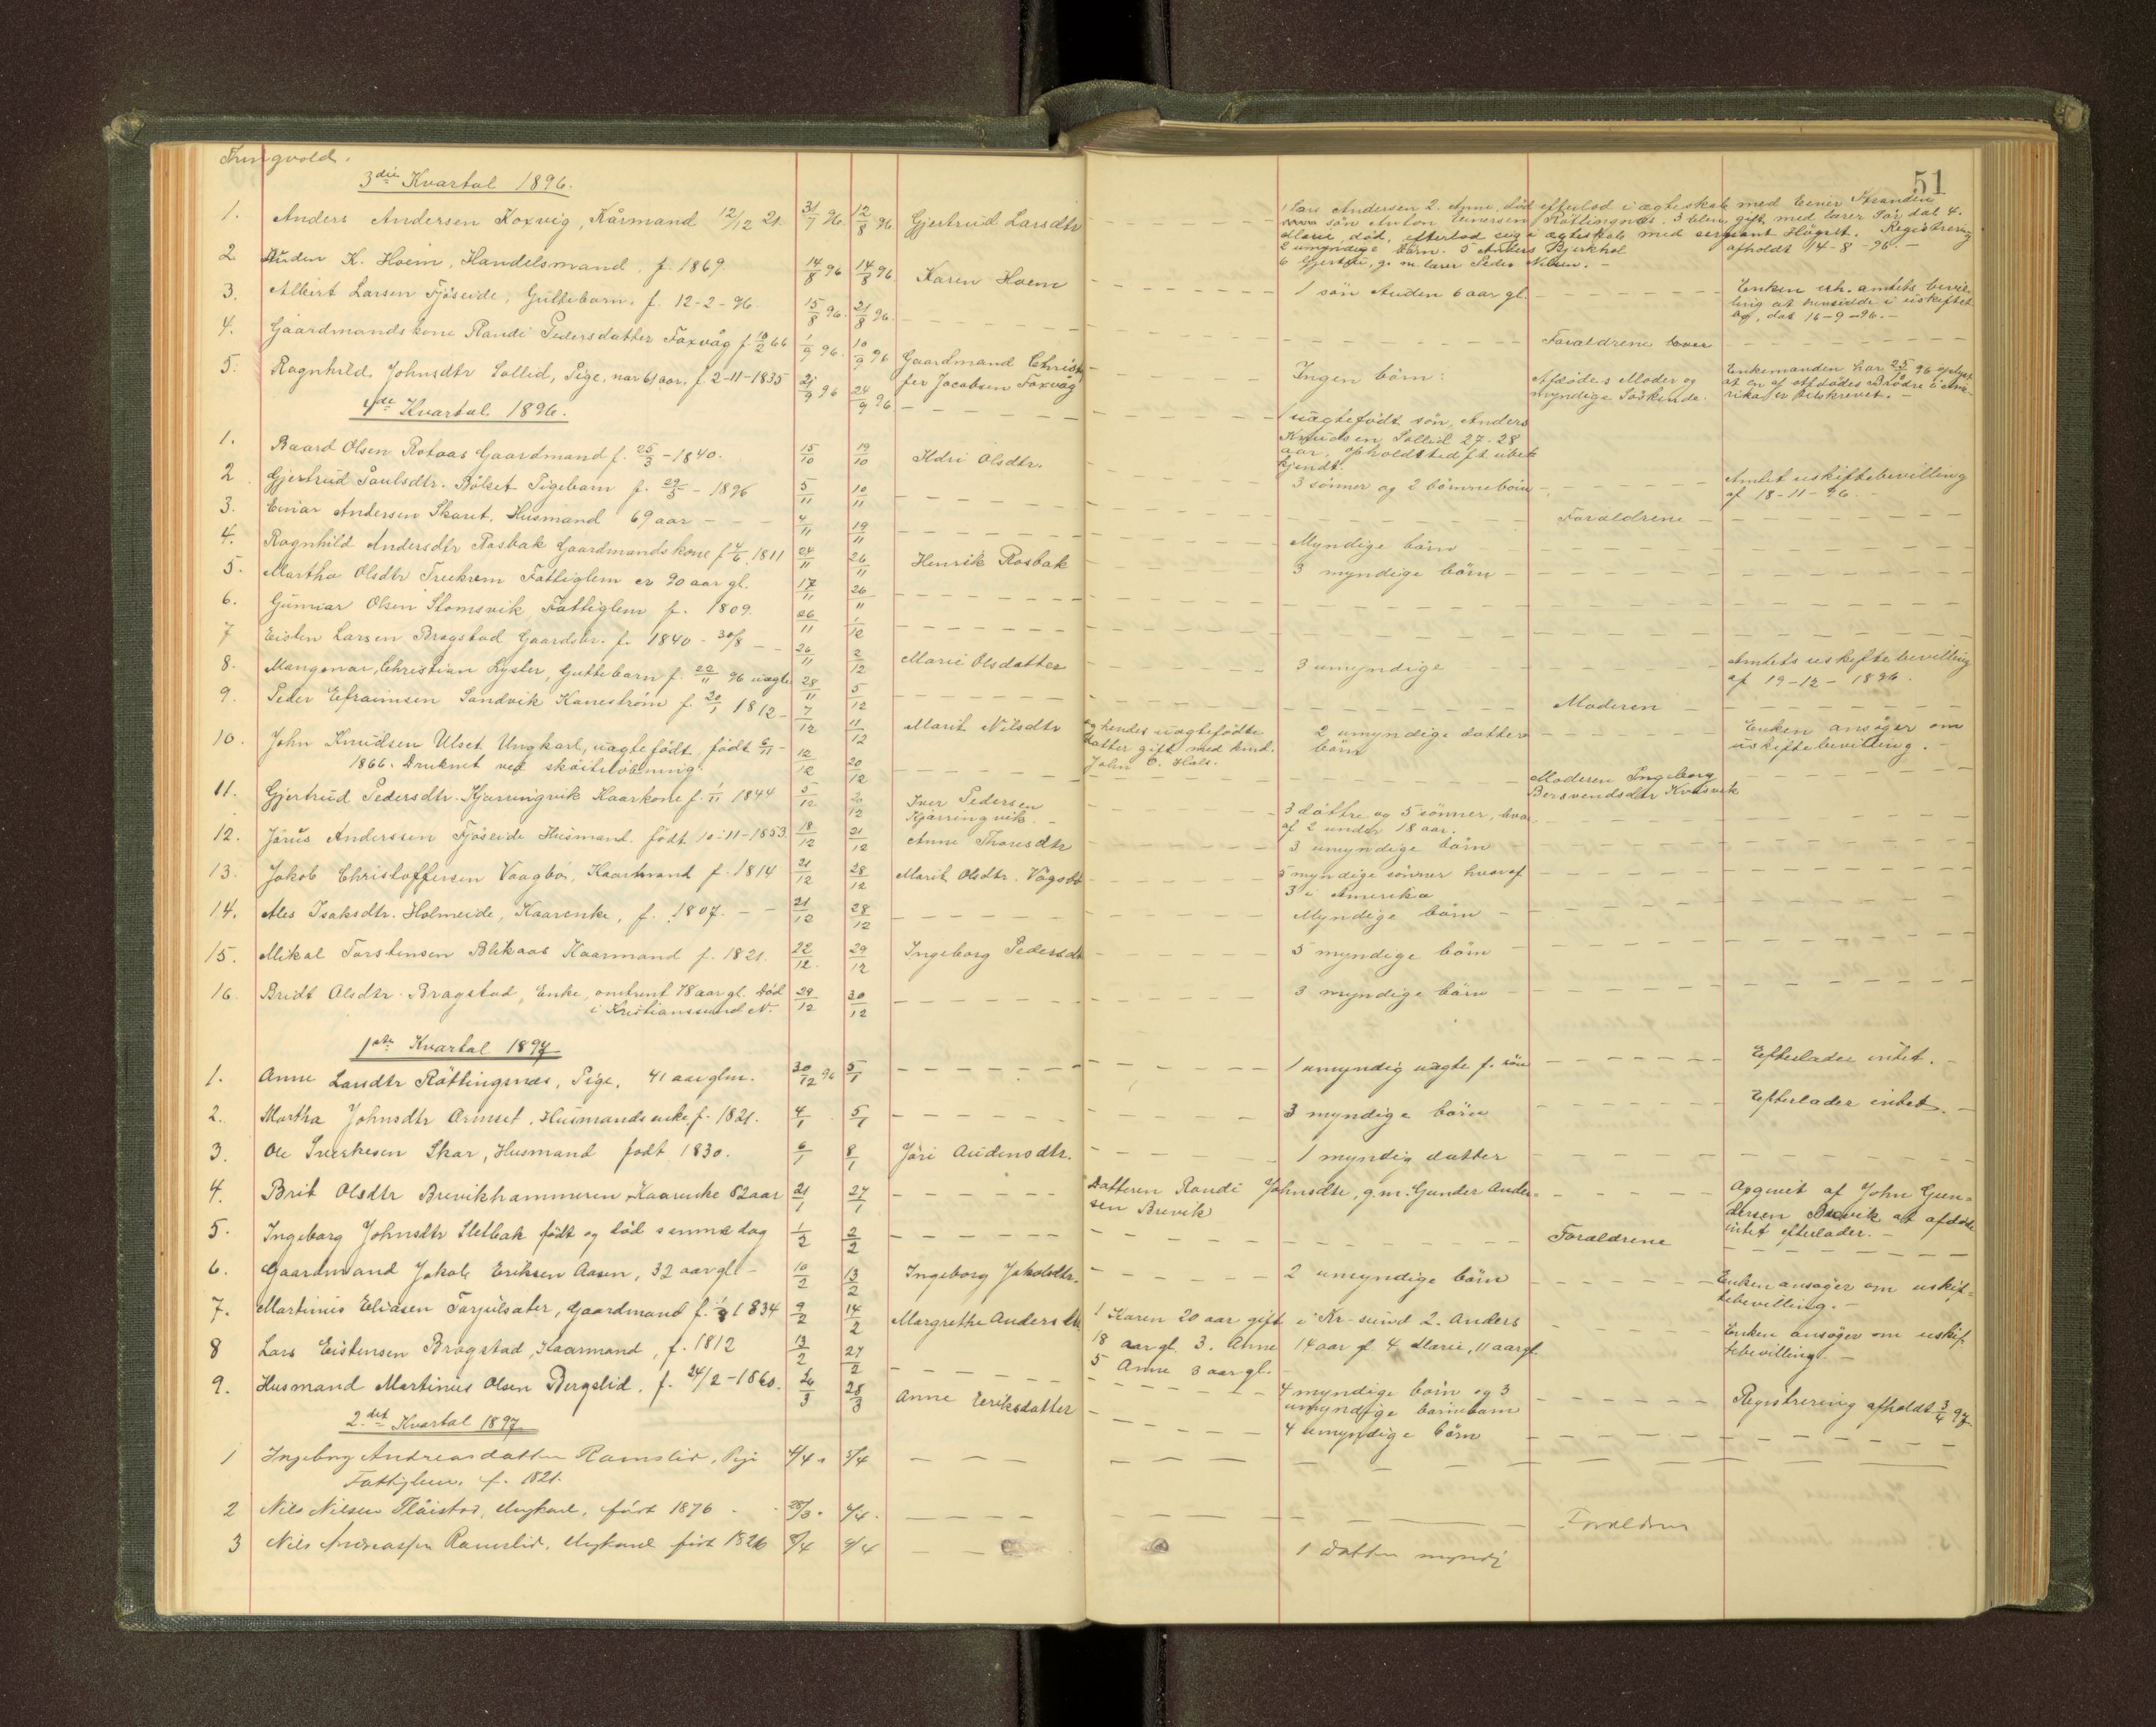 Tingvold.
51
3die Kvartal 1896.
1. Anders Andersen Koxvig, Kårmand 12/12 21. 31/7 96. 12/8 96. Gjertrud Larsdtr
1 Lars Andersen 2. Anne, död efterlod i ægteskab med Einer Stranden
sön Anton Einersen Röttingnæs. 3 Elen, gift med lærer Tördal 4.
Marie, död, efterlod sig i ægteskab med sergeant Högset. Registrering
2 umyndige börn. 5 Anders Bjerkhol afholdt 14-8-96. -
6 Gjertrü, g. m. lærer Peder Nilsen. -
2 Auden K. Hoem, Handelsmand, f. 1869. 14/8 96 14/8 96. Karen Hoem - - - 1 sön Auden 6 aar gl. - - - Enken erh. amtets bevil-
ling at hensidde i uskiftet
ag, dat 16-9-96. -
3. Albert Larsen Fjöseide, Guttebarn. f. 12-2-96. 15/8 96. 21/8 96. - - - Foraldrene lever - - -
4. Gaardmandskone Randi Pedersdatter Foxvåg f. 10/2 66 1/9 96. 10/9 96 Gaardmand Christo
fer Jacobsen Foxvåg - - - Ingen börn: Afdödes Moder og
myndige Söskende. Enkemanden har 25/10 96 oplyst
at en af afdödes Brödre i Ame-
rika er tilskrevet. -
5. Ragnhild Johnsdtr Sollid, Pige, nær 61 aar. f. 2-11-1835 21/9 96 24/9 96 - - - 1 uægtefödt sön, Anders
Knudsen Sollid 27-28
aar, opholdsted ft ubek
kjendt.
4de Kvartal 1896.
1. Baard Olsen Rotaas Gaardmand f. 25/3 - 1840. 15/10 19/10 Ildri Olsdtr. - - - 3 sönner og 2 börneborn - - - Amtet uskiftebevilling
af 18-11-96.
2 Gjertrud Paulsdtr. Bölset Pigebarn f. 29/3 - 1896 5/11 10/11 - - - Foraldrene - - -
3. Einar Andersen Skaret. Husmand 69 aar - - - 4/11 19/11 - - - Myndige börn - - -
4. Ragnhild Andersdtr Rosbak Gaardmandskone f 4/6 1811 24/11 26/11 Henrik Rosbak - - - 3 myndige börn - - -
5. Martha Olsdtr Treekrem Fattiglem er 90 aar gl. 17/11 26/11 - - -
6. Gunnar Olsen Stomsvik Fattiglem f. 1809. 26/11 1/12 - - -
7 Eisten Larsen Bragstad Gaardbr. f. 1840 - 30/8 - - 26/11 2/12 Marie Olsdatter - - - 3 umyndige - - - Amtets uskiftebevilling
af 19-12-1896.
8. Mangenar Christian Lyster, Guttebarn f. 22/11 96 uægte 28/11 5/12 - - - Moderen - - -
9. Peder Efraimsen Sandvik Kanestrøm f. 20/1 1812 - 7/12 11/12 Marit Nilsdtr og hendes uægtefödte
datter gift med hmd.
John C. Hals. 2 umyndige datter
börn - - - Enken ansöger om
uskiftebevilling. -
10. John Knudsen Ulset Ungkarl, uægtefödt, födt 6/11 -
1866. Druknet ved sköiteløbning. 12/12 20/12 - - - Moderen Ingeborg
Bersvendsdtr Kvisvik
11. Gjertrud Pedersdtr. Kjærringvik Kaarkone f. 1/11 1844 5/12 20/12 Iver Pedersen
Kjærringvik. - - - 3 döttre og 5 sönner, hvor
af 2 under 18 aar.
12. Jörus Anderssen Fjöseide Husmand. födt 10-11-1853 18/12 21/12 Anne Thoresdtr - - - 3 umyndige börn - - -
13. Jakob Christoffersen Vaagbö, Kaarmand f. 1814 21/12 28/12 Marit Olsdtr. Vågsbö - - - 5 myndige sönner hvoraf
3 i Amerika
14. Ales Isaksdtr. Holmeide, Kaarenke, f. 1807. - - 21/12 28/12 - - - Myndige börn - - -
15. Mikal Torstensen Blikaas Kaarmand f. 1821. 22/12. 29/12 Ingeborg Pedersdt - - - 5 myndige börn - - -
16. Bridt Olsdtr. Bragstad, Enke, omtrent 78 aar gl. död
i Kristianssund N. 29/12 30/12 - - - 3 myndige börn - - -
1ste Kvartal 1897
1. Anne Larsdtr Röttingsnæs, Pige, 41 aar glm. 30/12 96 5/1 - - - 1 umyndig uægte f. sön - - - Efterlader intet. -
2. Martha Johnsdtr Arimset, Husmandsenke, f. 1821. 4/1 5/1 - - - 3 myndige börn - - - Efterlader intet. -
3. Ole Sverkesen Skar, Husmand födt 1830. 6/1 8/1 Jöri Audensdtr. - - - 1 myndig datter - - -
4. Brit Olsdtr Brevikhammeren, Kaarenke 82 aar 21/1 27/1 - - - Datteren Randi Johnsdtr, g.m. Gunder Ander-
sen Brevik - - - Opgivet af John Gun-
dersen Brevik at afdöde
intet efterlader. -
5. Ingeborg Johnsdtr Sletbak födt og död samme dag 1/2 2/2 - - - Foraldrene - - -
6. Gaardmand Jakob Eriksen Aasen, 32 aar gl - 10/2 13/2 Ingeborg Jakobsdtr. - - - 2 umyndige börn - - - Enken ansöger om uskif-
tebevilling. -
7. Martinus Eliasen Torjulsæter, Gaardmand f. 1834 9/2 14/2 Margrethe Andersdtr 1 Karen 20 aar gift i Kr-sund 2. Anders
18 aar gl. 3. Anne 14 aar g 4 Marie, 11 aar gl.
5 Anne 3 aar gl. - - - Enken ansöger om uskif-
tebevilling. -
8 Lars Eistensen Bragstad, Kaarmand, f. 1812 13/2 27/2 - - - 4 myndige börn og 3
umyndige börnebarn
9. Husmand Martinus Olsen Bergslid, f. 24/2 - 1860. 26/3 28/3 Anne Eriksdatter - - - 4 umyndige börn - - - Registrering afholdt 3/4 97
2.det Kvartal 1897
1 Ingeborg Andreasdatter Ramslid, Pige
Fattiglem, f. 1821. 4/4 5/4 - - -
2 Nils Nilsen Flåistad, Ungkarl, född 1876 28/3. 4/4. - - - Foraldrene
3 Nils Andreassen Ramslid, Ungkarl född 1826 8/4 9/4 - - - 1 datter myndig